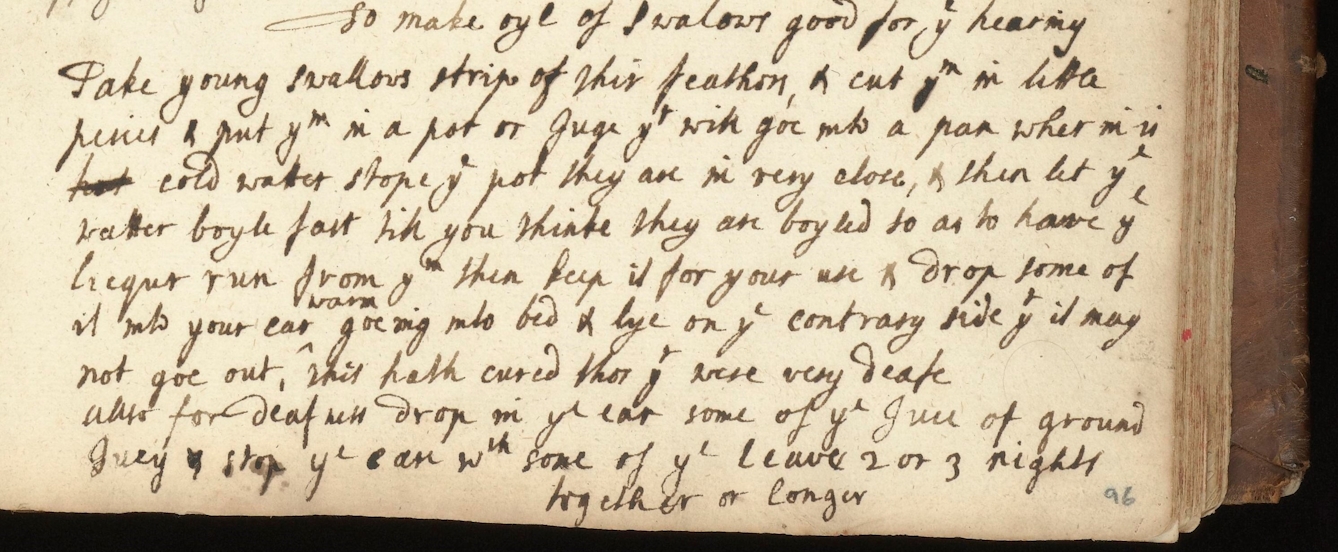 To make oyl of Swalows good for yᵉ hearing
Take young swallows strip of thir feathers, & cut yᵐ in little
peices & put yᵐ in a pot or Juge yᵗ will goe into a pan wher in is
hot cold watter stope yᵉ pot they are in very close, & then let yᵉ
watter boyle fast till you thinke they are boyled so as to have yᵉ
licqur run from yᵐ then keep it for your use & drop some of
it into your ear warm goeing into bed & lye on yᵉ contrary side yᵗ it may
not goe out, ^ this hath cured thos yᵗ were very deafe
allso for deafness drop in yᵉ ear some of yᵉ Juce of ground
Ivey & stop yᵉ eare wᵗʰ some of yᵉ leaves 2 or 3 nights
together or longer
96